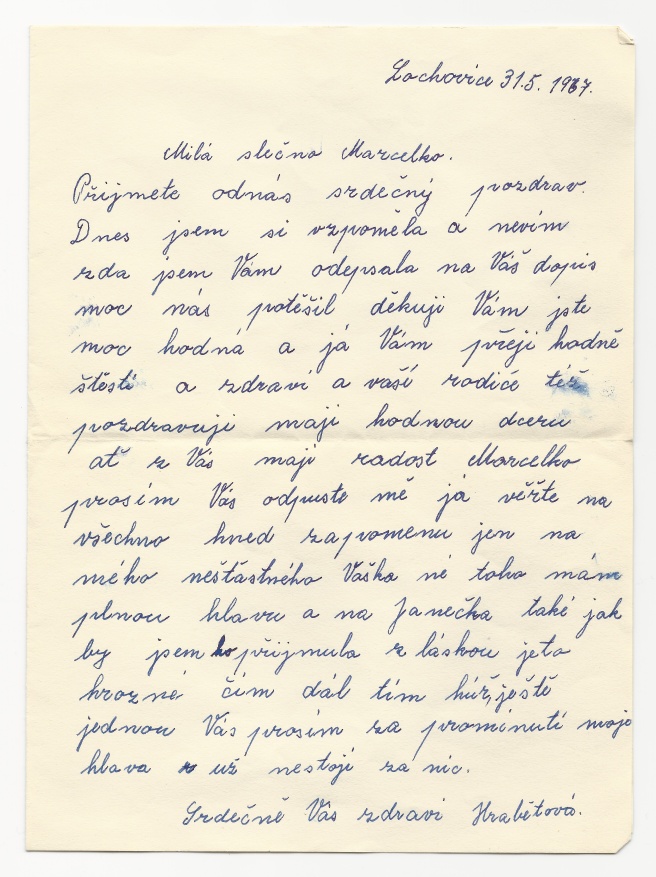 Lochovice 31.5. 1967.
Milá slečno Marcelko.
Přijmete odnás srdečný pozdrav.
Dnes jsem si vzpoměla a nevím
zda jsem Vám odepsala na Váš dopis
moc nás potěšil děkuji Vám jste
moc hodná a já Vám přeji hodně
štěstí a zdraví a vaší rodiče též
pozdravuji maji hodnou dceru
ať z Vás maji radost Marcelko
prosím Vás odpuste mě já věřte na
všechno hned zapomenu jen na
mého nešťastného Vaška né toho mám
plnou hlavu a na Janečka také jak
by jsem ho přijmula z láskou jeto
hrozné čím dál tím húř, ještě
jednou Vás prosím za prominutí moje
hlava už nestojí za nic.
Srdečně Vás zdraví Hrabětová.